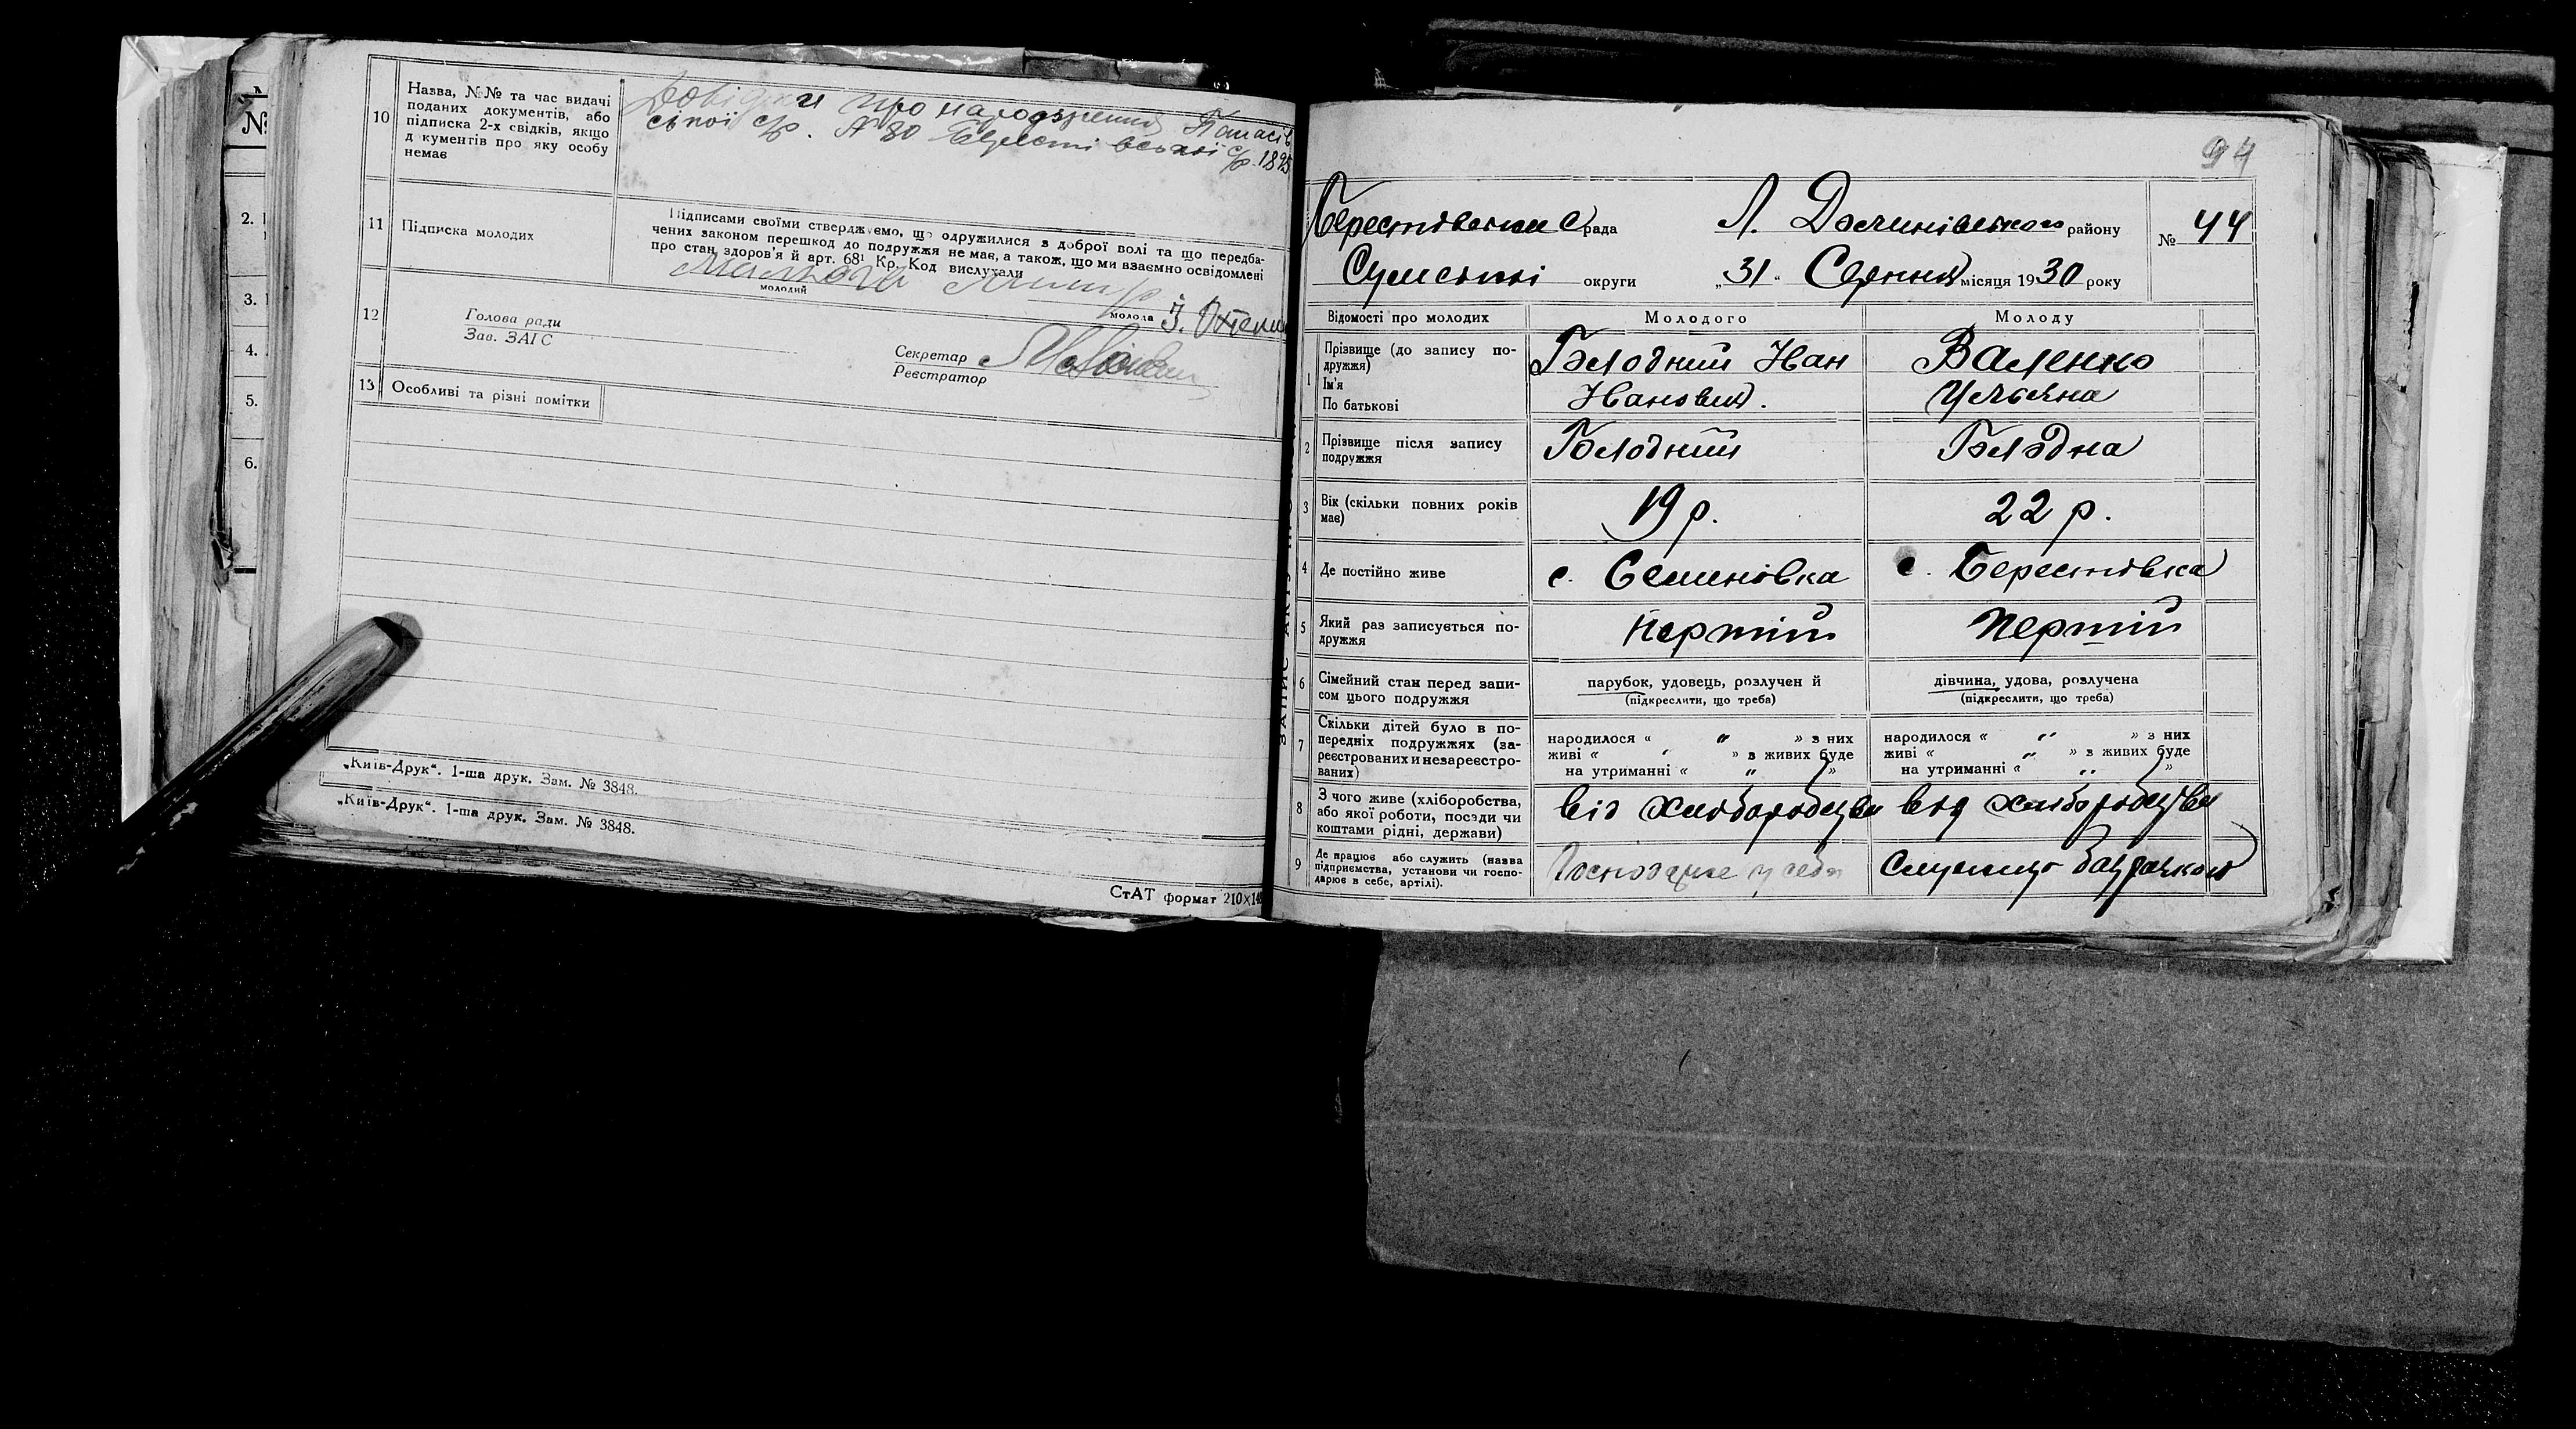 №
2.
3.
4.
5.
6.
10
Назва, №№ та час видачі
поданих документів, або
підписка 2-х свідків, якщо
д кументів про яку особу
немає
Довідки про народження Панасів
ської с/р. № 80 Берестівської с/р. 1895
11
Підписка молодих
Підписами своїми стверджуємо, що одружилися з доброї волі та що передба-
чених законом перешкод до подружжя немає, а також, що ми взаємно освідомлені
про стан здоров'я й арт. 68¹ Кр. Код вислухали
молодий
молода
12
Голова ради
Зав. ЗАГС
Секретар
Реєстратор
13
Особливі та різні помітки
„Київ-Друк“. 1-ша друк. Зам. № 3848.
„Київ-Друк“. 1-ша друк. Зам. № 3848.
СтАТ формат 210×14
94
Берестівська С рада Л. Долинівського району № 44
Сумської округи „31“ Серпня місяця 1930 року
Відомості про молодих Молодого Молоду
1 Прізвище (до запису по-
дружжя)
Ім'я
По батькові
Голодний Іван
Іванович.
Валенко
Ульяна
2 Прізвище після запису
подружжя
Голодний Голодна
3 Вік (скільки повних років
має)
19 р. 22 р.
4 Де постійно живе с. Семиновка с. Берестовка
5 Який раз записується по-
дружжя
Перший Перший
6 Сімейний стан перед запи-
сом цього подружжя
парубок, удовець, розлучен й
(підкреслити, що треба)
дівчина, удова, розлучена
(підкреслити, що треба)
7 Скільки дітей було в по-
передніх подружжях (за-
реєстрованих и незареєстро-
ваних)
народилося « “ » з них
живі « “ » з живих буде
на утриманні « “ »
народилося « “ » з них
живі « “ » з живих буде
на утриманні « “ »
8 З чого живе (хліборобства,
або якої роботи, посади чи
коштами рідні, держави)
від хліборобства від хліборобства
9 Де працює або служить (назва
підприємства, установи чи госпо-
дарює в себе, артілі).
у себе